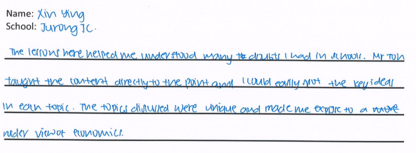 Name: Xin Ying
School: Jurong JC.
The lessons here helped me understood many doubts I had in school. Mr Toh
taught the content directly to the point and I could easily spot the key ideas
in each topic. The topics discussed were unique and made me expose to a more
wider view of economics.